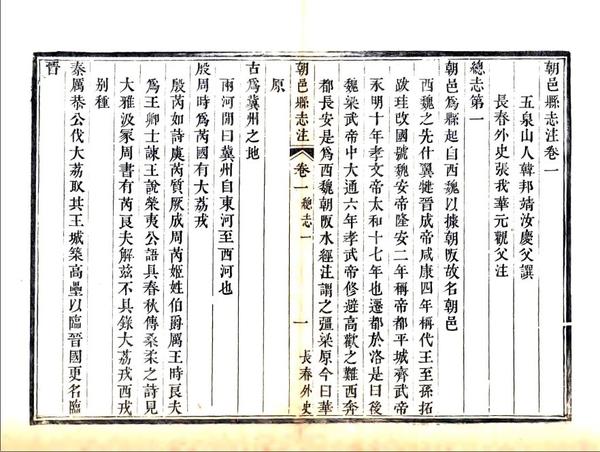 朝邑縣志注卷一
五泉山人韓邦靖汝慶父譔
長春外史張我華元觀父注
總志第一
朝邑爲縣起自西魏以據朝阪故名朝邑
西魏之先什翼犍晉成帝咸康四年稱代王至孫拓
跋珪改國號魏安帝隆安二年稱帝都平城齊武帝
永明十年孝文帝太和十七年也遷都於洛是曰後
魏梁武帝中大通六年孝武帝修避高歡之難西奔
都長安是爲西魏朝阪水經注謂之彊梁原今曰華
朝邑縣志注
卷一 總志一
一
長春外史
原
古爲冀州之地
兩河閒曰冀州自東河至西河也
殷周時爲芮國有大荔戎
殷芮如詩虞芮質厥成周芮姬姓伯爵厲王時良夫
爲王卿士諫王說榮夷公語具春秋傳桑柔之詩見
大雅汲冢周書有芮良夫解茲不具錄大荔戎西戎
别種
秦厲恭公伐大荔取其王城築高壘以臨晉國更名臨
晉